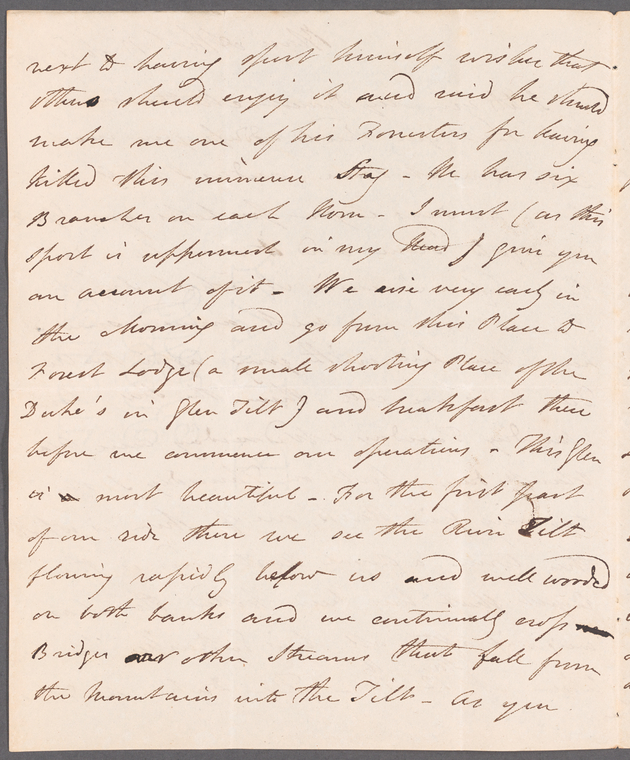 next to having sport himself wishes that
others should enjoy it and said he should
make me one of his Forresters for having
killed this immense Stag - He has six
Branches on each Horn - I must (as this
sport is uppermost in my Head) give you
an account of it - We rise very early in
the Morning and go from this Place to
Forest Lodge (a small shooting Place of the
Duke's in Glen Tilt) and breakfast there
before we commence our operations - This Glen
is most beautiful - For the first part
of our ride there we see the River Tilt
flowing rapidly below us and well wooded
on both banks and we continually cross
Bridges over other Streams that fall from
the Mountains into the Tilt - As you